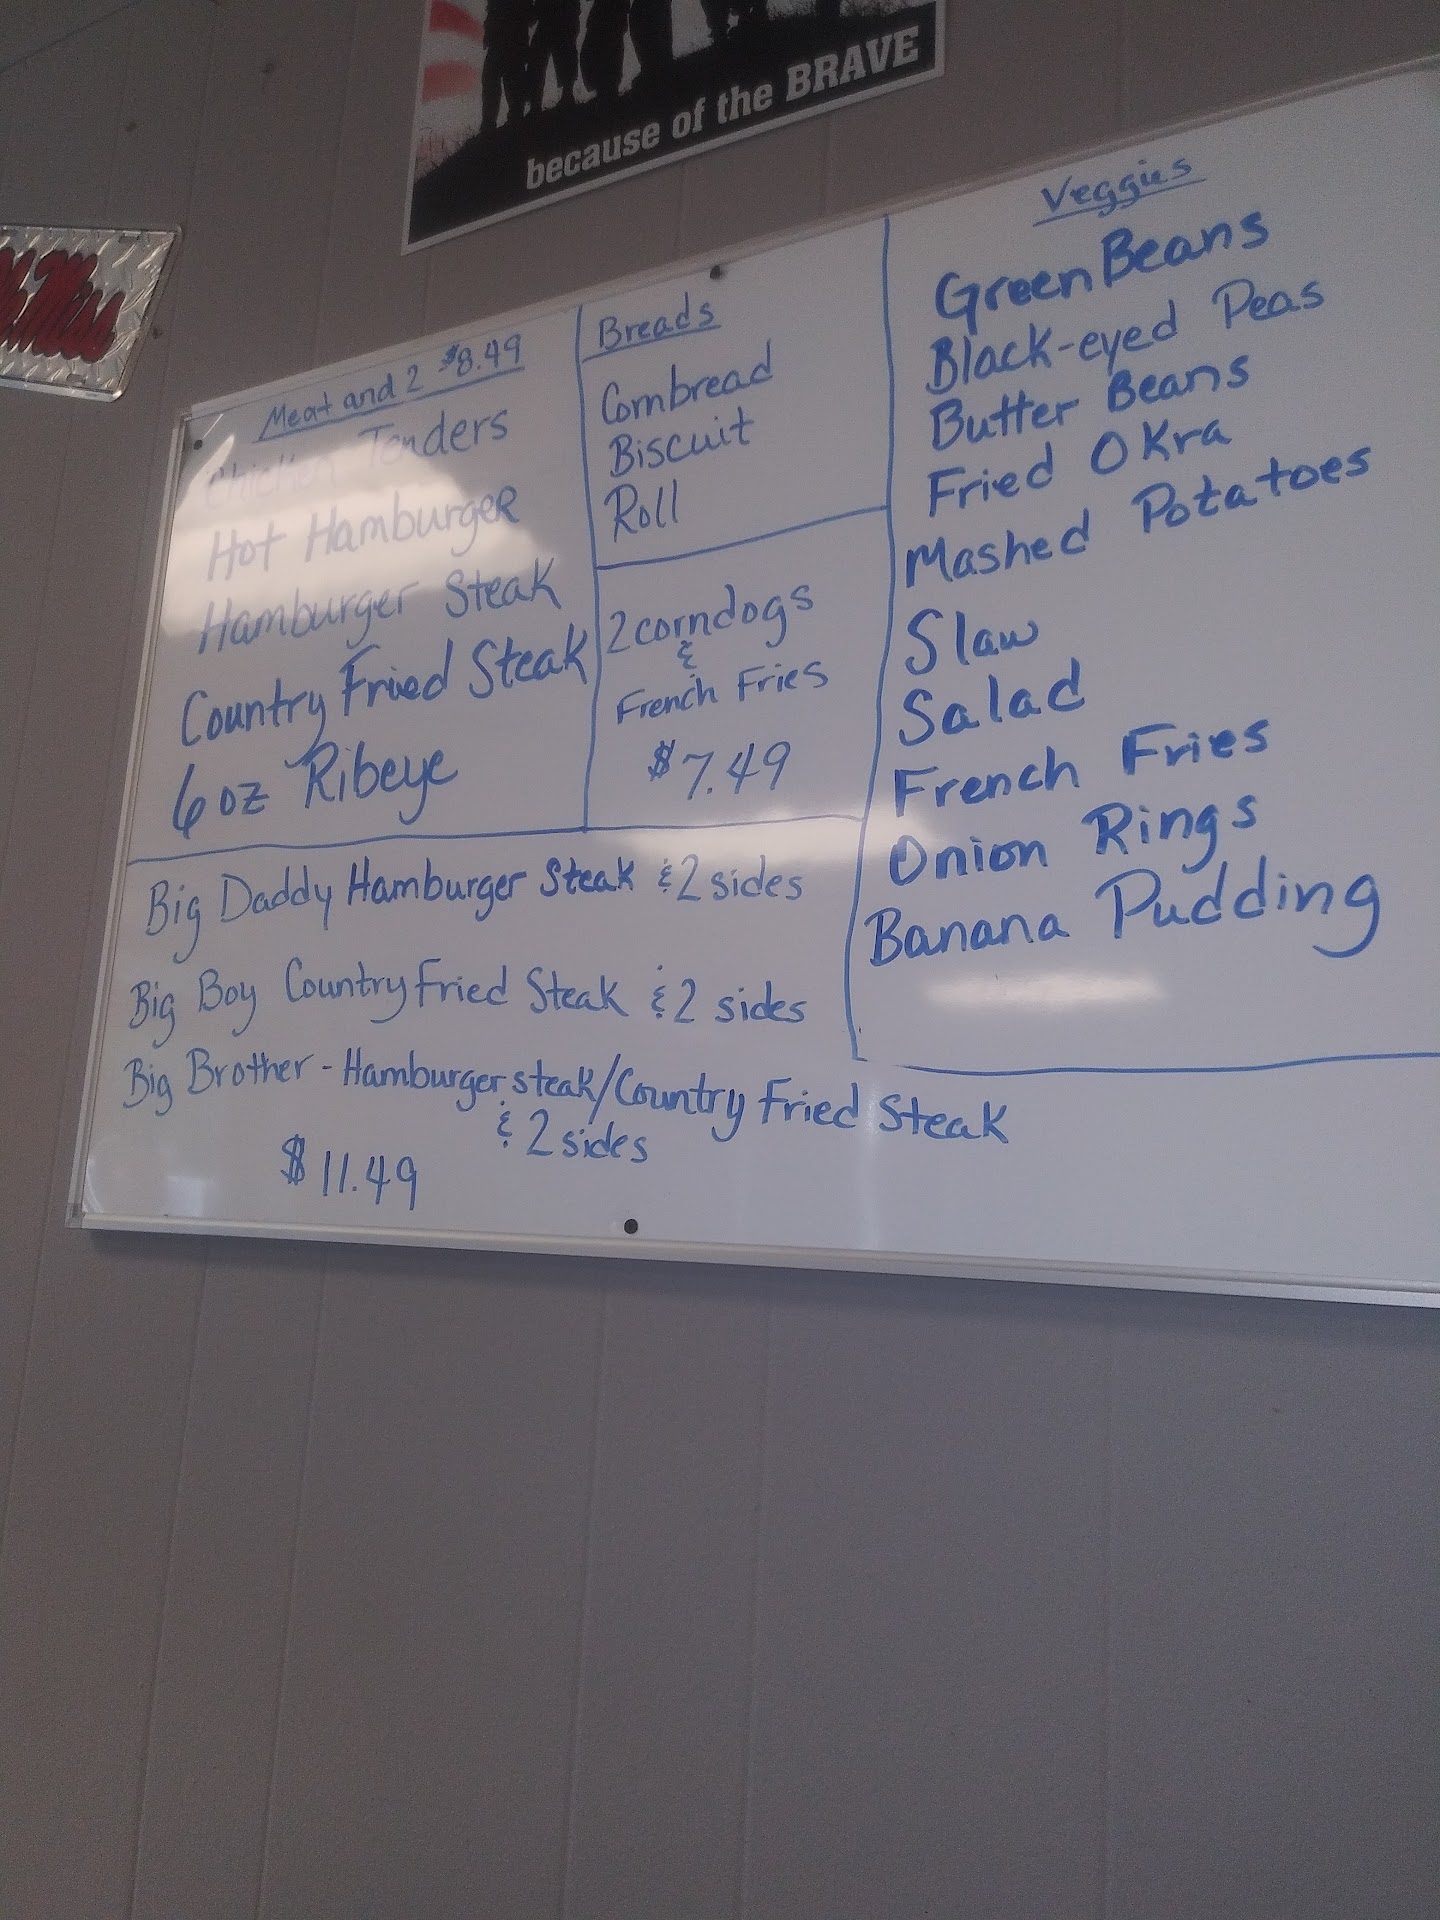 because of the BRAVE
Ole Miss
Meat and 2 $8.49
Chicken Tenders
Hot Hamburger
Hamburger Steak
Country Fried Steak
6 oz Ribeye
Breads
Cornbread
Biscuit
Roll
2 corndogs
&
French Fries
$7.49
Veggies
Green Beans
Black-eyed Peas
Butter Beans
Fried Okra
Mashed Potatoes
Slaw
Salad
French Fries
Onion Rings
Banana Pudding
Big Daddy Hamburger Steak & 2 sides
Big Boy Country Fried Steak & 2 sides
Big Brother - Hamburger steak/Country Fried Steak
& 2 sides
$11.49